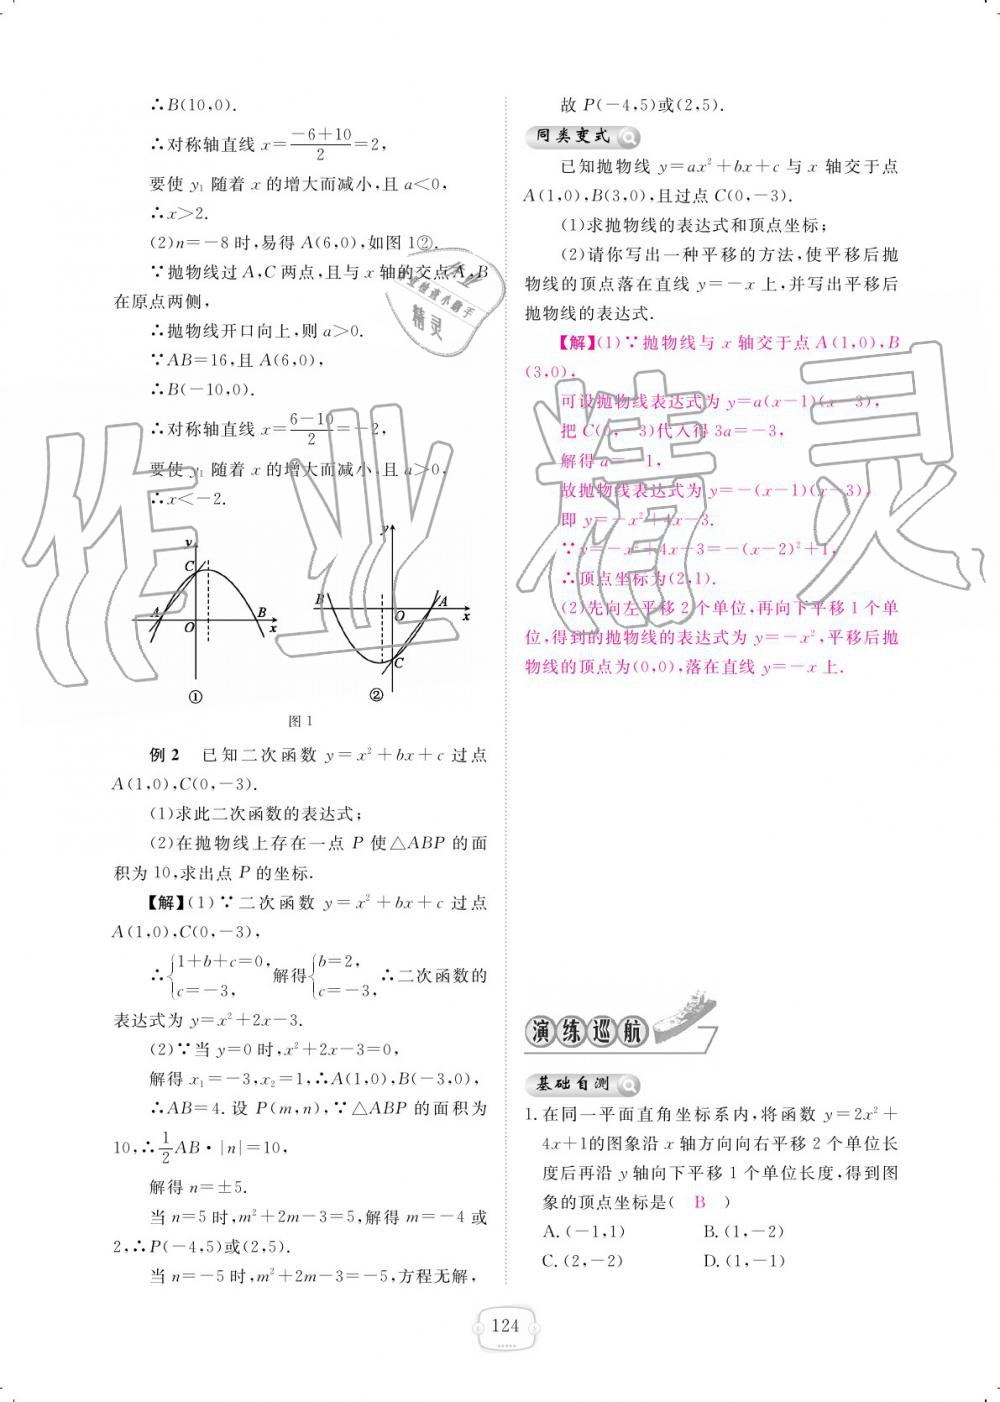 ∴B(10,0).
∴对称轴直线 x=\frac{-6+10}{2}=2,
要使 y₁ 随着 x 的增大而减小,且 a<0,
∴x>2.
(2)n=-8时,易得 A(6,0),如图1②.
∵抛物线过 A,C 两点,且与 x 轴的交点 A,B
在原点两侧,
∴抛物线开口向上,则 a>0.
∵AB=16,且 A(6,0),
∴B(-10,0).
∴对称轴直线 x=\frac{6-10}{2}=-2,
要使 y₁ 随着 x 的增大而减小,且 a>0,
∴x<-2.
y
C
A
O
B
x
①
y
B
O
A
x
C
②
图1
例2 已知二次函数 y=x²+bx+c 过点
A(1,0),C(0,-3).
(1)求此二次函数的表达式;
(2)在抛物线上存在一点 P 使△ABP 的面
积为10,求出点 P 的坐标.
【解】(1)∵二次函数 y=x²+bx+c 过点
A(1,0),C(0,-3),
∴{1+b+c=0, c=-3, 解得{b=2, c=-3, ∴二次函数的
表达式为 y=x²+2x-3.
(2)∵当 y=0时,x²+2x-3=0,
解得 x₁=-3,x₂=1,∴A(1,0),B(-3,0),
∴AB=4.设 P(m,n),∵△ABP 的面积为
10,∴\frac{1}{2}AB·|n|=10,
解得 n=±5.
当 n=5时,m²+2m-3=5,解得 m=-4或
2,∴P(-4,5)或(2,5).
当 n=-5时,m²+2m-3=-5,方程无解,
故 P(-4,5)或(2,5).
同类变式
已知抛物线 y=ax²+bx+c 与 x 轴交于点
A(1,0),B(3,0),且过点 C(0,-3).
(1)求抛物线的表达式和顶点坐标;
(2)请你写出一种平移的方法,使平移后抛
物线的顶点落在直线 y=-x 上,并写出平移后
抛物线的表达式.
【解】(1)∵抛物线与 x 轴交于点 A(1,0),B
(3,0),
可设抛物线表达式为 y=a(x-1)(x-3),
把 C(0,-3)代入得3a=-3,
解得 a=-1,
故抛物线表达式为 y=-(x-1)(x-3),
即 y=-x²+4x-3.
∵y=-x²+4x-3=-(x-2)²+1,
∴顶点坐标为(2,1).
(2)先向左平移2个单位,再向下平移1个单
位,得到的抛物线的表达式为 y=-x²,平移后抛
物线的顶点为(0,0),落在直线 y=-x 上.
演练巡航
基础自测
1.在同一平面直角坐标系内,将函数 y=2x²+
4x+1的图象沿 x 轴方向向右平移2个单位长
度后再沿 y 轴向下平移1个单位长度,得到图
象的顶点坐标是( B )
A.(-1,1) B.(1,-2)
C.(2,-2) D.(1,-1)
124
作业精灵
作业
作业检查小助手
精灵